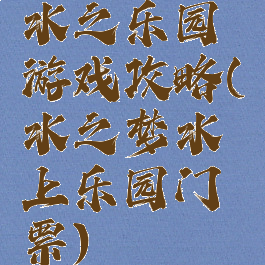 水之乐园
游戏攻略(
水之梦水
上乐园门
票)